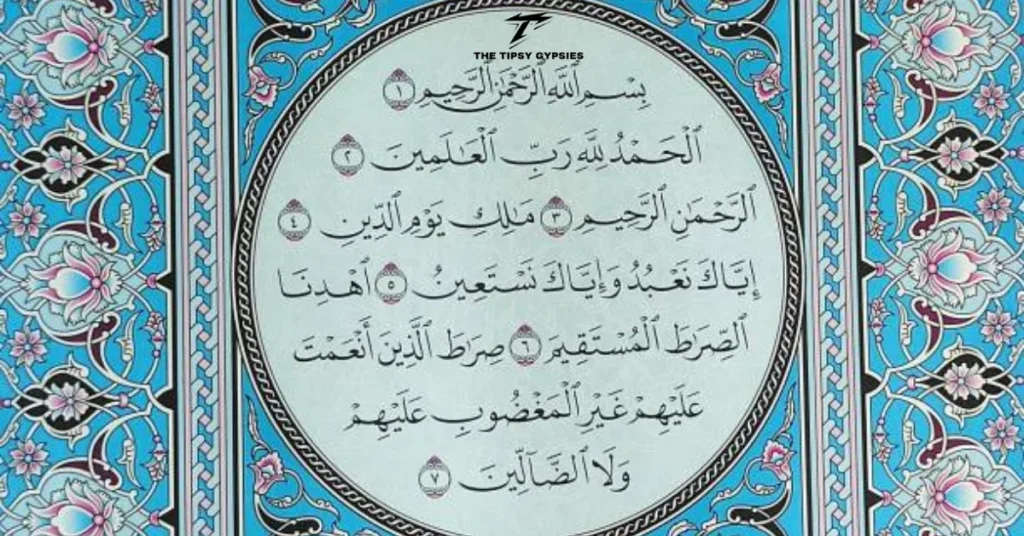 THE TIPSY GYPSIES
بِسْمِ ٱللَّهِ ٱلرَّحْمَٰنِ ٱلرَّحِيمِ ١
ٱلْحَمْدُ لِلَّهِ رَبِّ ٱلْعَٰلَمِينَ ٢
ٱلرَّحْمَٰنِ ٱلرَّحِيمِ ٣ مَٰلِكِ يَوْمِ ٱلدِّينِ ٤
إِيَّاكَ نَعْبُدُ وَإِيَّاكَ نَسْتَعِينُ ٥ ٱهْدِنَا
ٱلصِّرَٰطَ ٱلْمُسْتَقِيمَ ٦ صِرَٰطَ ٱلَّذِينَ أَنْعَمْتَ
عَلَيْهِمْ غَيْرِ ٱلْمَغْضُوبِ عَلَيْهِمْ
وَلَا ٱلضَّآلِّينَ ٧